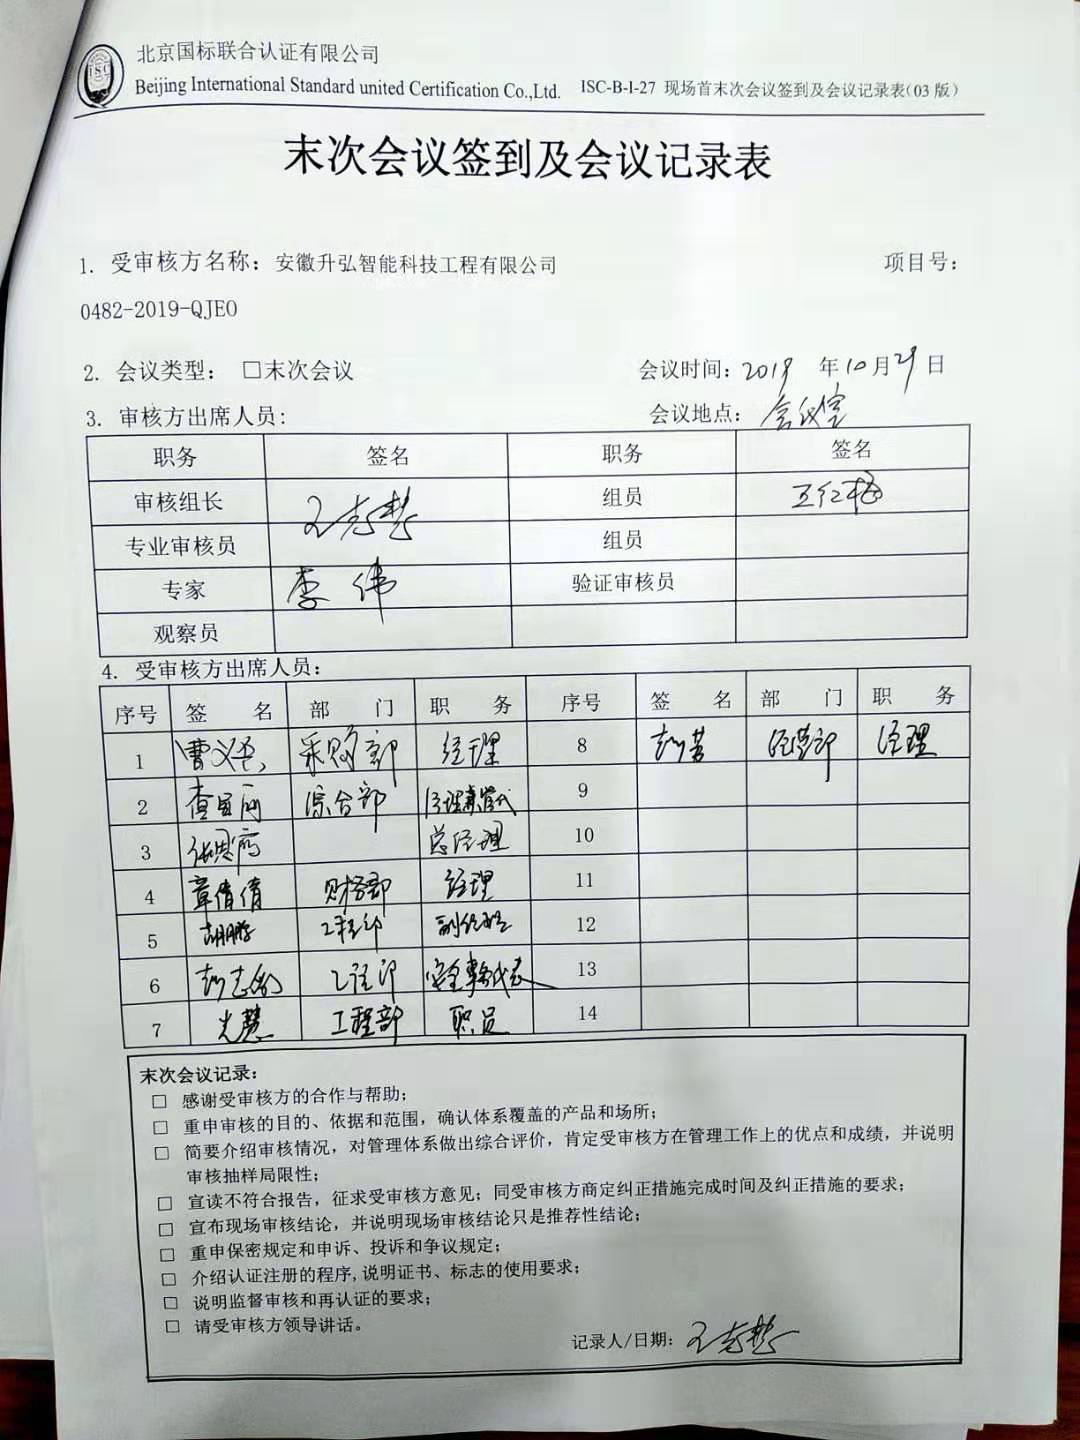 ISC
北京国标联合认证有限公司
Beijing International Standard united Certification Co.,Ltd. ISC-B-I-27 现场首末次会议签到及会议记录表(03版)
末次会议签到及会议记录表
1. 受审核方名称：安徽升弘智能科技工程有限公司 项目号：
0482-2019-QJEO
2. 会议类型： □末次会议 会议时间：2019 年10月29日
3. 审核方出席人员： 会议地点：会议室
职务 签名 职务 签名
审核组长 组员 王红梅
专业审核员 组员
专家 李伟 验证审核员
观察员
4. 受审核方出席人员：
序号 签 名 部 门 职 务 序号 签 名 部 门 职 务
1 采购部 经理 8 经营部 经理
2 综合部 9
3 总经理 10
4 章倩倩 财务部 经理 11
5 胡鹏 工程部 副经理 12
6 工程部 安全事务代表 13
7 光慧 工程部 职员 14
末次会议记录：
□ 感谢受审核方的合作与帮助；
□ 重申审核的目的、依据和范围，确认体系覆盖的产品和场所；
□ 简要介绍审核情况，对管理体系做出综合评价，肯定受审核方在管理工作上的优点和成绩，并说明
审核抽样局限性；
□ 宣读不符合报告，征求受审核方意见；同受审核方商定纠正措施完成时间及纠正措施的要求；
□ 宣布现场审核结论，并说明现场审核结论只是推荐性结论；
□ 重申保密规定和申诉、投诉和争议规定；
□ 介绍认证注册的程序,说明证书、标志的使用要求；
□ 说明监督审核和再认证的要求；
□ 请受审核方领导讲话。
记录人/日期：